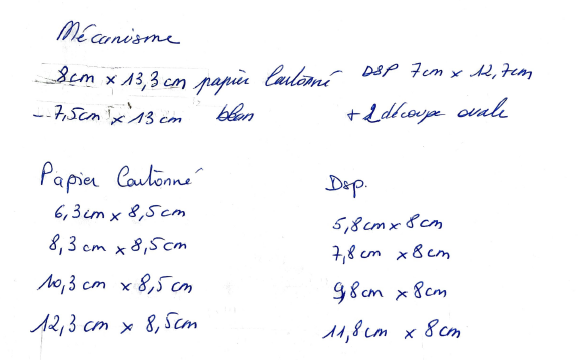 Mécanisme
8cm x 13,3cm papier Cartonné DSP 7cm x 12,7cm
- 7,5cm x 13cm + 2 découpe ovale
Papier Cartonné
6,3cm x 8,5cm
8,3cm x 8,5cm
10,3cm x 8,5cm
12,3cm x 8,5cm
Dsp.
5,8cm x 8cm
7,8cm x 8cm
9,8cm x 8cm
11,8cm x 8cm